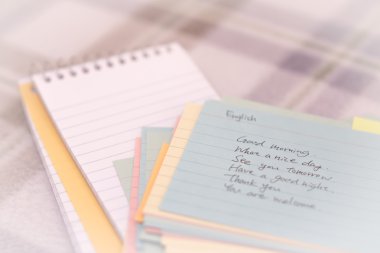 English
Good morning
What a nice day
See you tomorrow
Have a good night.
Thank you
You are welcome